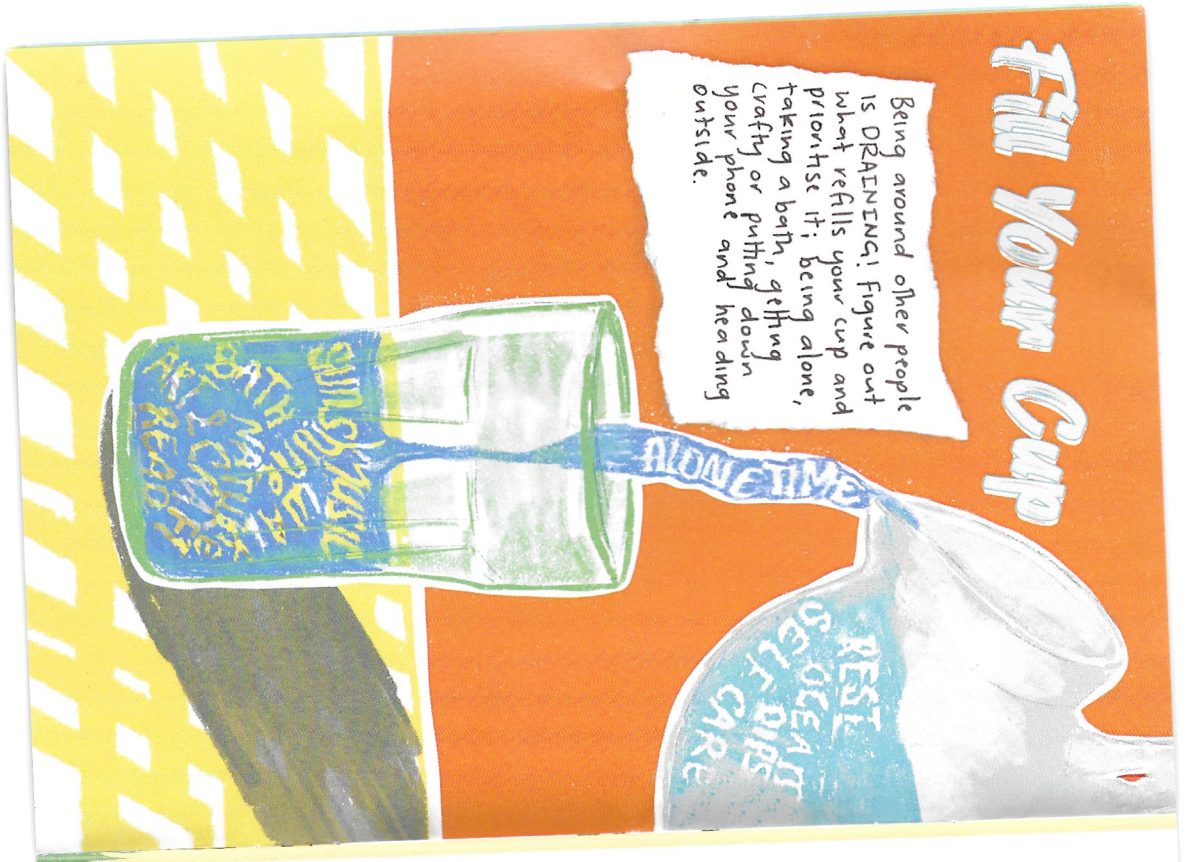 Fill Your Cup
Being around other people
is DRAINING! Figure out
what refills your cup and
prioritise it; being alone,
taking a bath, getting
crafty or putting down
your phone and heading
outside.
ALONE TIME
REST
OCEAN
DIPS
SELF CARE
MUSIC
BATH
NATURE
READ